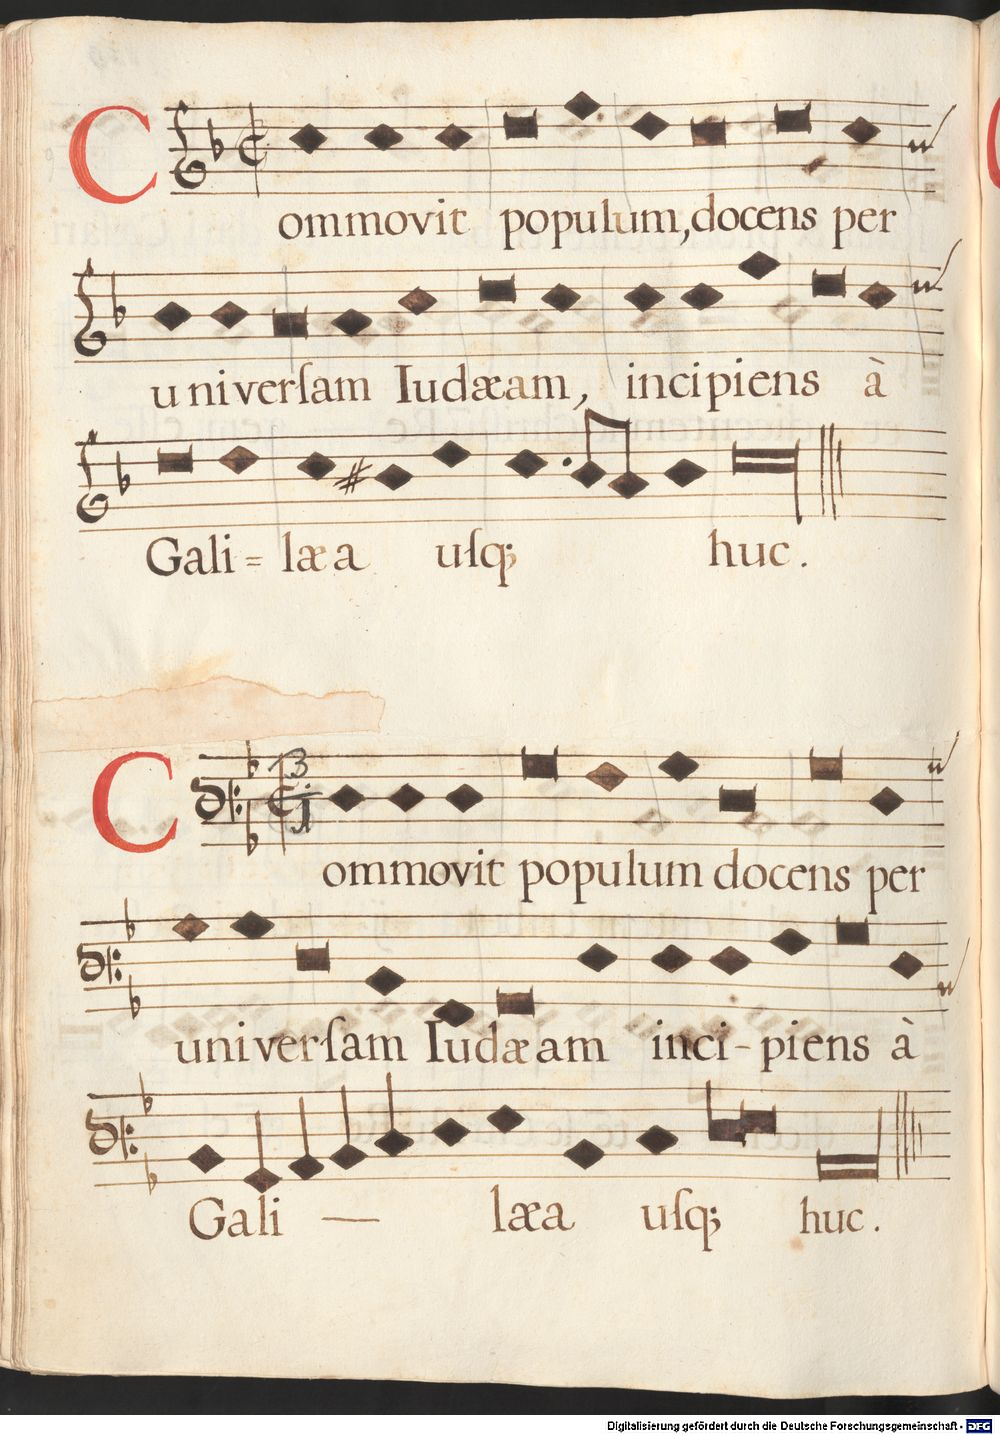 Commovit populum, docens per
universam Iudæam, incipiens à
Gali = læa usq; huc.
Commovit populum docens per
universam Iudæam inci-piens à
Gali — læa usq; huc.
Digitalisierung gefördert durch die Deutsche Forschungsgemeinschaft - DFG